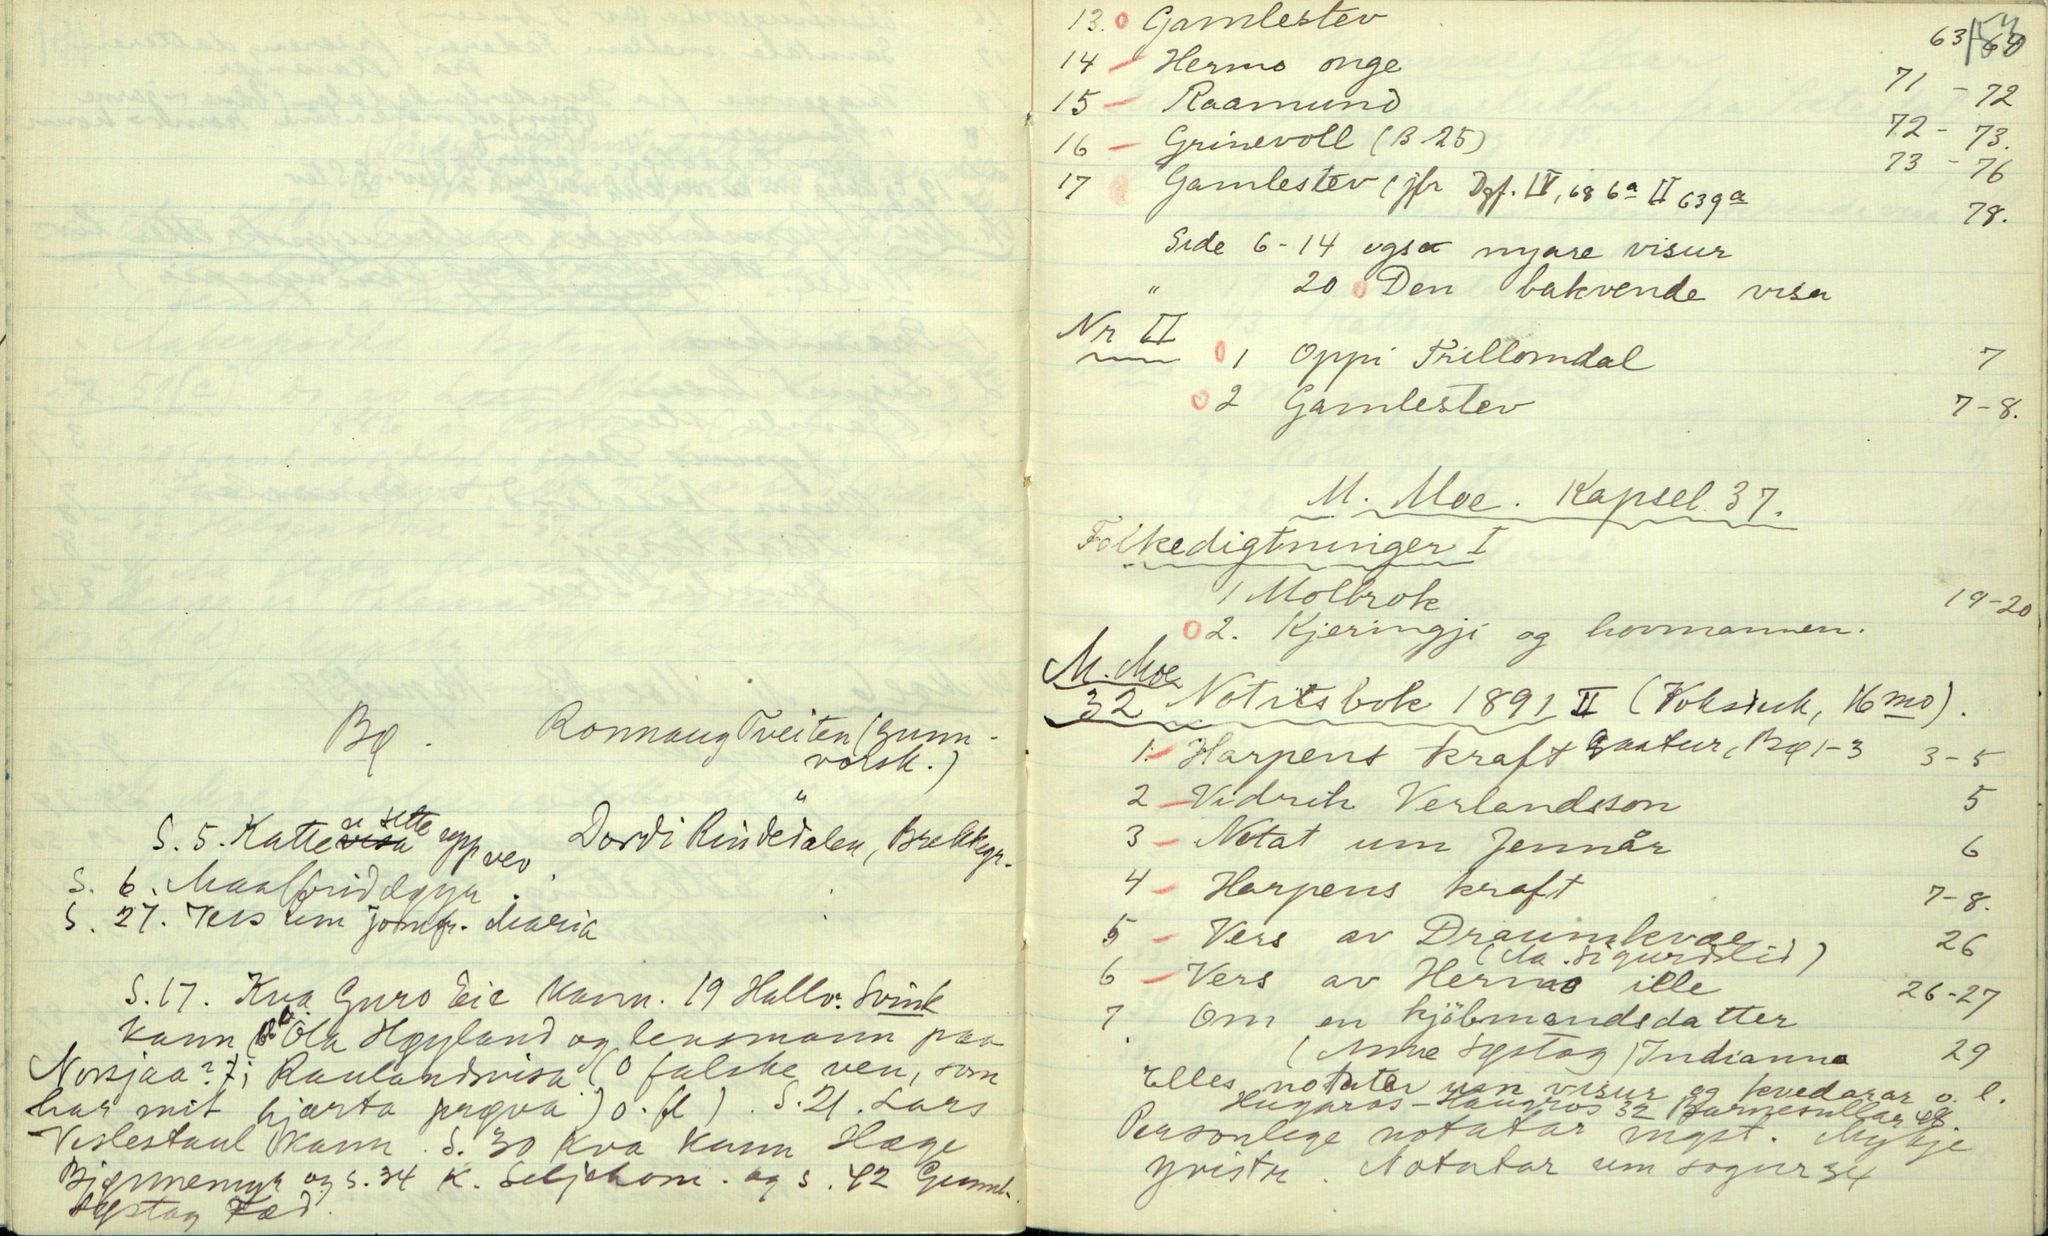 Bø. Ronnaug Tveiten (Gunn-
volsk.)
S. 5. Katte visa se sette upp vev Dordi Rindedalen, Brekkegr.
S. 6.
S. 27. Vers um jomfr. Maria
S. 17. Kva Guro Eie kann. 19 Hallv. Svink
kann Ola Høyland og lensmann paa
Norsjaa? Raulandsvisa (O falske ven, som
har mit hjarta prøva) o. fl). S. 21. Lars
Veslestaul kann. S. 30 kva kann Hæge
Bjønnemyr og S. 34 K. Seljehom. og S. 42 Gunnh.
Søstog
13. Gamlestev 63-
14 - Hermo onge 71 - 72
15 - Raamund 72 - 73.
16 - Grinevoll (B 25) 73 - 76
17 Gamlestev (jfr Dgf. IV, 68 6a II 639a 78.
Side 6-14 ogsa nyare visur
" 20 Den bakvende visa
Nr II
1 Oppi Trillomdal 7
2 Gamlestev 7-8.
M. Moe. Kapsel 37.
Folkedigtninger I
1 Molbrok 19-20
2. Kjeringji og hovmannen.
M. Moe
32 Notitsbok 1891 II (Voksduk, 16mo).
1. - Harpens kraft Gautur, Bø 1-3 3-5
2 - Vidrik Verlandsson 5
3 - Notat um Jennår 6
4 - Harpens kraft 7-8.
5 - Vers av Draumkvæe 26
(Aa. Sigurdslid)
6 - Vers av Hermo ille 26-27
7 Om en kjöbmandsdatter
(Anne Søstog) Indianna 29
Elles notatar um visur og kvedarar o. l.
Hugaras-Haugros 32 Barnesullar 48.
Personlege notatar mgst. Mykje
yvistr. Notatar um sogur 34